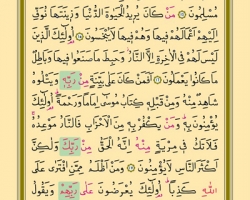 مُسْلِمُونَ ۝ مَنْ كَانَ يُرِيدُ الْحَيَوٰةَ الدُّنْيَا وَزِينَتَهَا نُوَفِّ
اِلَيْهِمْ اَعْمَالَهُمْ فِيهَا وَهُمْ فِيهَا لَا يُبْخَسُونَ ۝ اُولٰٓئِكَ الَّذِينَ
لَيْسَ لَهُمْ فِي الْاٰخِرَةِ اِلَّا النَّارُ وَحَبِطَ مَا صَنَعُوا فِيهَا وَبَاطِلٌ
مَا كَانُوا يَعْمَلُونَ ۝ اَفَمَنْ كَانَ عَلٰى بَيِّنَةٍ مِنْ رَبِّهِ وَيَتْلُوهُ
شَاهِدٌ مِنْهُ وَمِنْ قَبْلِهِ كِتَابُ مُوسٰٓى اِمَامًا وَرَحْمَةً اُولٰٓئِكَ
يُؤْمِنُونَ بِهِ وَمَنْ يَكْفُرْ بِهِ مِنَ الْاَحْزَابِ فَالنَّارُ مَوْعِدُهُ
فَلَا تَكُ فِي مِرْيَةٍ مِنْهُ اِنَّهُ الْحَقُّ مِنْ رَبِّكَ وَلٰكِنَّ
اَكْثَرَ النَّاسِ لَا يُؤْمِنُونَ ۝ وَمَنْ اَظْلَمُ مِمَّنِ افْتَرٰى عَلَى
اللّٰهِ كَذِبًا اُولٰٓئِكَ يُعْرَضُونَ عَلٰى رَبِّهِمْ وَيَقُولُ